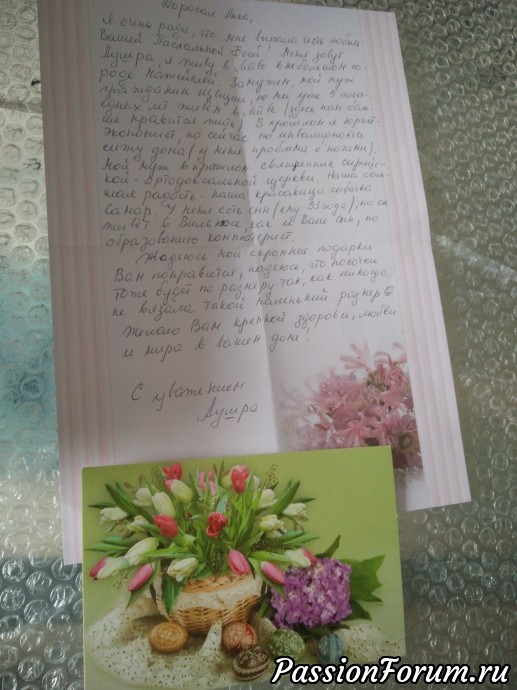 Дорогая Анна,
Я очень рада, что мне выпала честь побыть
Вашей Пасхальной Феей! Меня зовут
Аушра, я живу в Литве в небольшом го-
роде Мажейкяй. Замужем, мой муж
гражданин Швеции, но мы уже 5 послед-
едних лет живем в Литве (здесь нам боль-
ше нравится жить). В прошлом я юрист-
экономист, но сейчас по инвалидности
сижу дома (у меня проблема с ногами).
Мой муж в прошлом священник сирийс-
кой-Ортодоксальной церкви. Наша боль-
шая радость - наша красавица собачка
Самар. У меня есть сын (ему 33 года), но он
живёт в Вильнюсе, как и Ваш сын, по
образованию компютерист.
Надеюсь мои скромные подарки
Вам понравится, надеюсь, что носочки
тоже будет по размеру так, как никогда
не вязала такой маленький размер
Желаю Вам крепкой здоровьи, любви
и мира в вашем доме!
С уважением
Аушра
PassionForum.ru